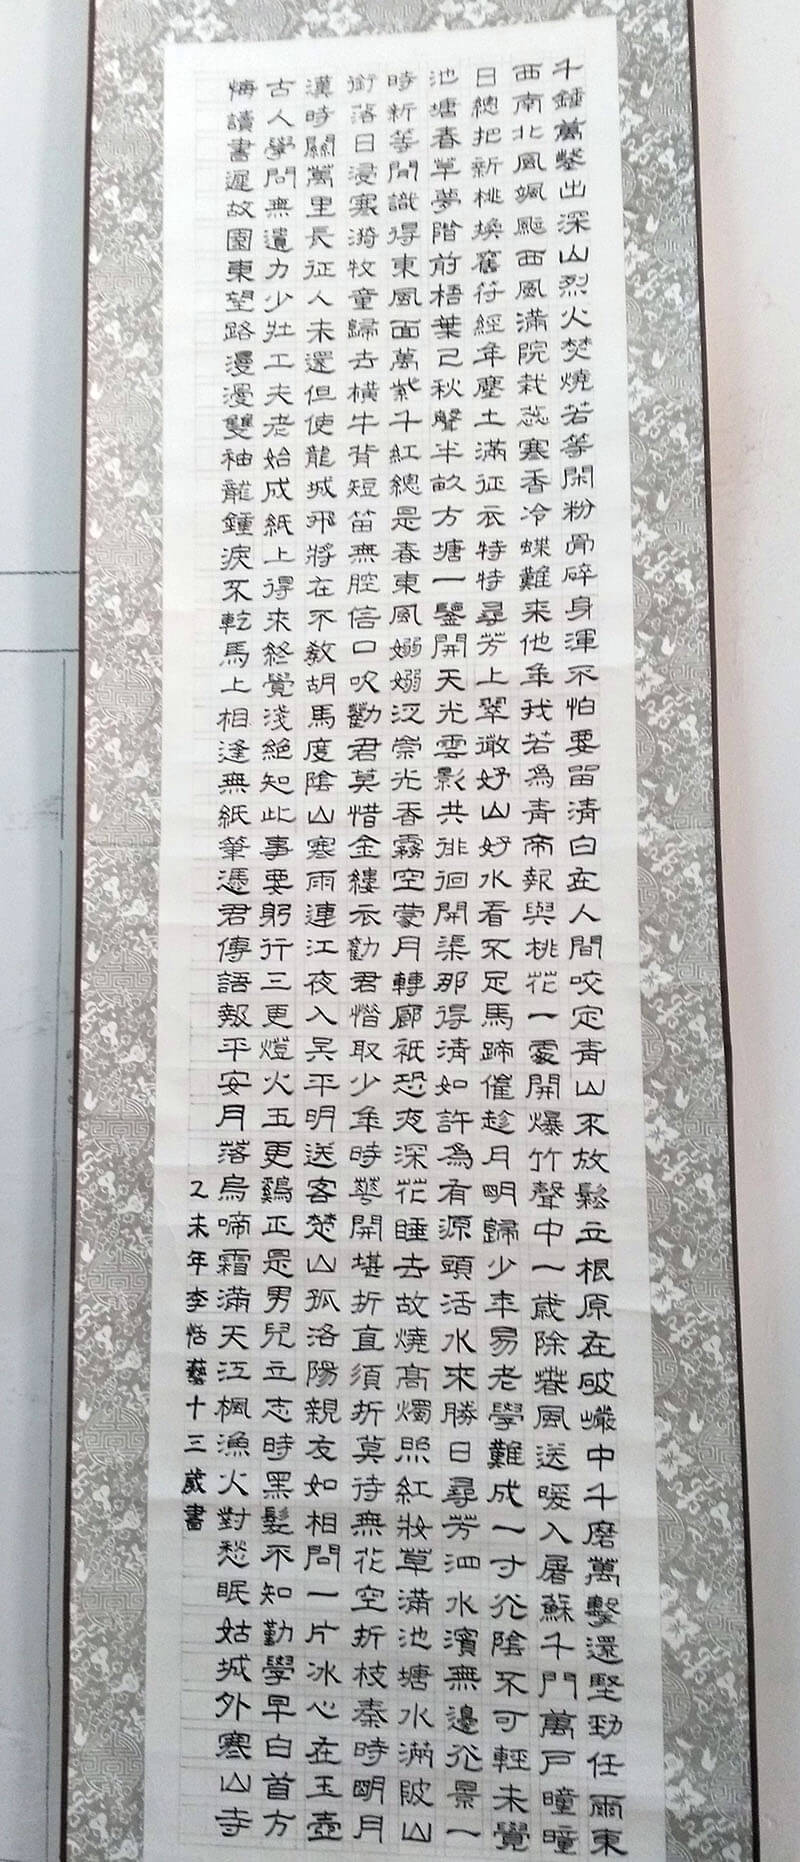 千錘萬鑿出深山烈火焚燒若等閑粉骨碎身渾不怕要留清白在人間咬定青山不放鬆立根原在破巖中千磨萬擊還堅勁任爾東
西南北風颯颯西風滿院栽蕊寒香冷蝶難來他年我若為青帝報與桃花一處開爆竹聲中一歲除春風送暖入屠蘇千門萬戶曈曈
日總把新桃換舊符經年塵土滿征衣特特尋芳上翠微好山好水看不足馬蹄催趁月明歸少年易老學難成一寸光陰不可輕未覺
池塘春草夢階前梧葉已秋聲半畝方塘一鑒開天光雲影共徘徊開渠那得清如許為有源頭活水來勝日尋芳泗水濱無邊光景一
時新等閒識得東風面萬紫千紅總是春東風嫋嫋泛崇光香霧空蒙月轉廊祇恐夜深花睡去故燒高燭照紅妝草滿池塘水滿陂山
銜落日浸寒漪牧童歸去橫牛背短笛無腔信口吹勸君莫惜金縷衣勸君惜取少年時花開堪折直須折莫待無花空折枝秦時明月
漢時關萬里長征人未還但使龍城飛將在不教胡馬度陰山寒雨連江夜入吳平明送客楚山孤洛陽親友如相問一片冰心在玉壺
古人學問無遺力少壯工夫老始成紙上得來終覺淺絕知此事要躬行三更燈火五更鷄正是男兒立志時黑髮不知勤學早白首方
悔讀書遲故園東望路漫漫雙袖龍鍾淚不乾馬上相逢無紙筆憑君傳語報平安月落烏啼霜滿天江楓漁火對愁眠姑城外寒山寺
乙未年李恬藝十三歲書